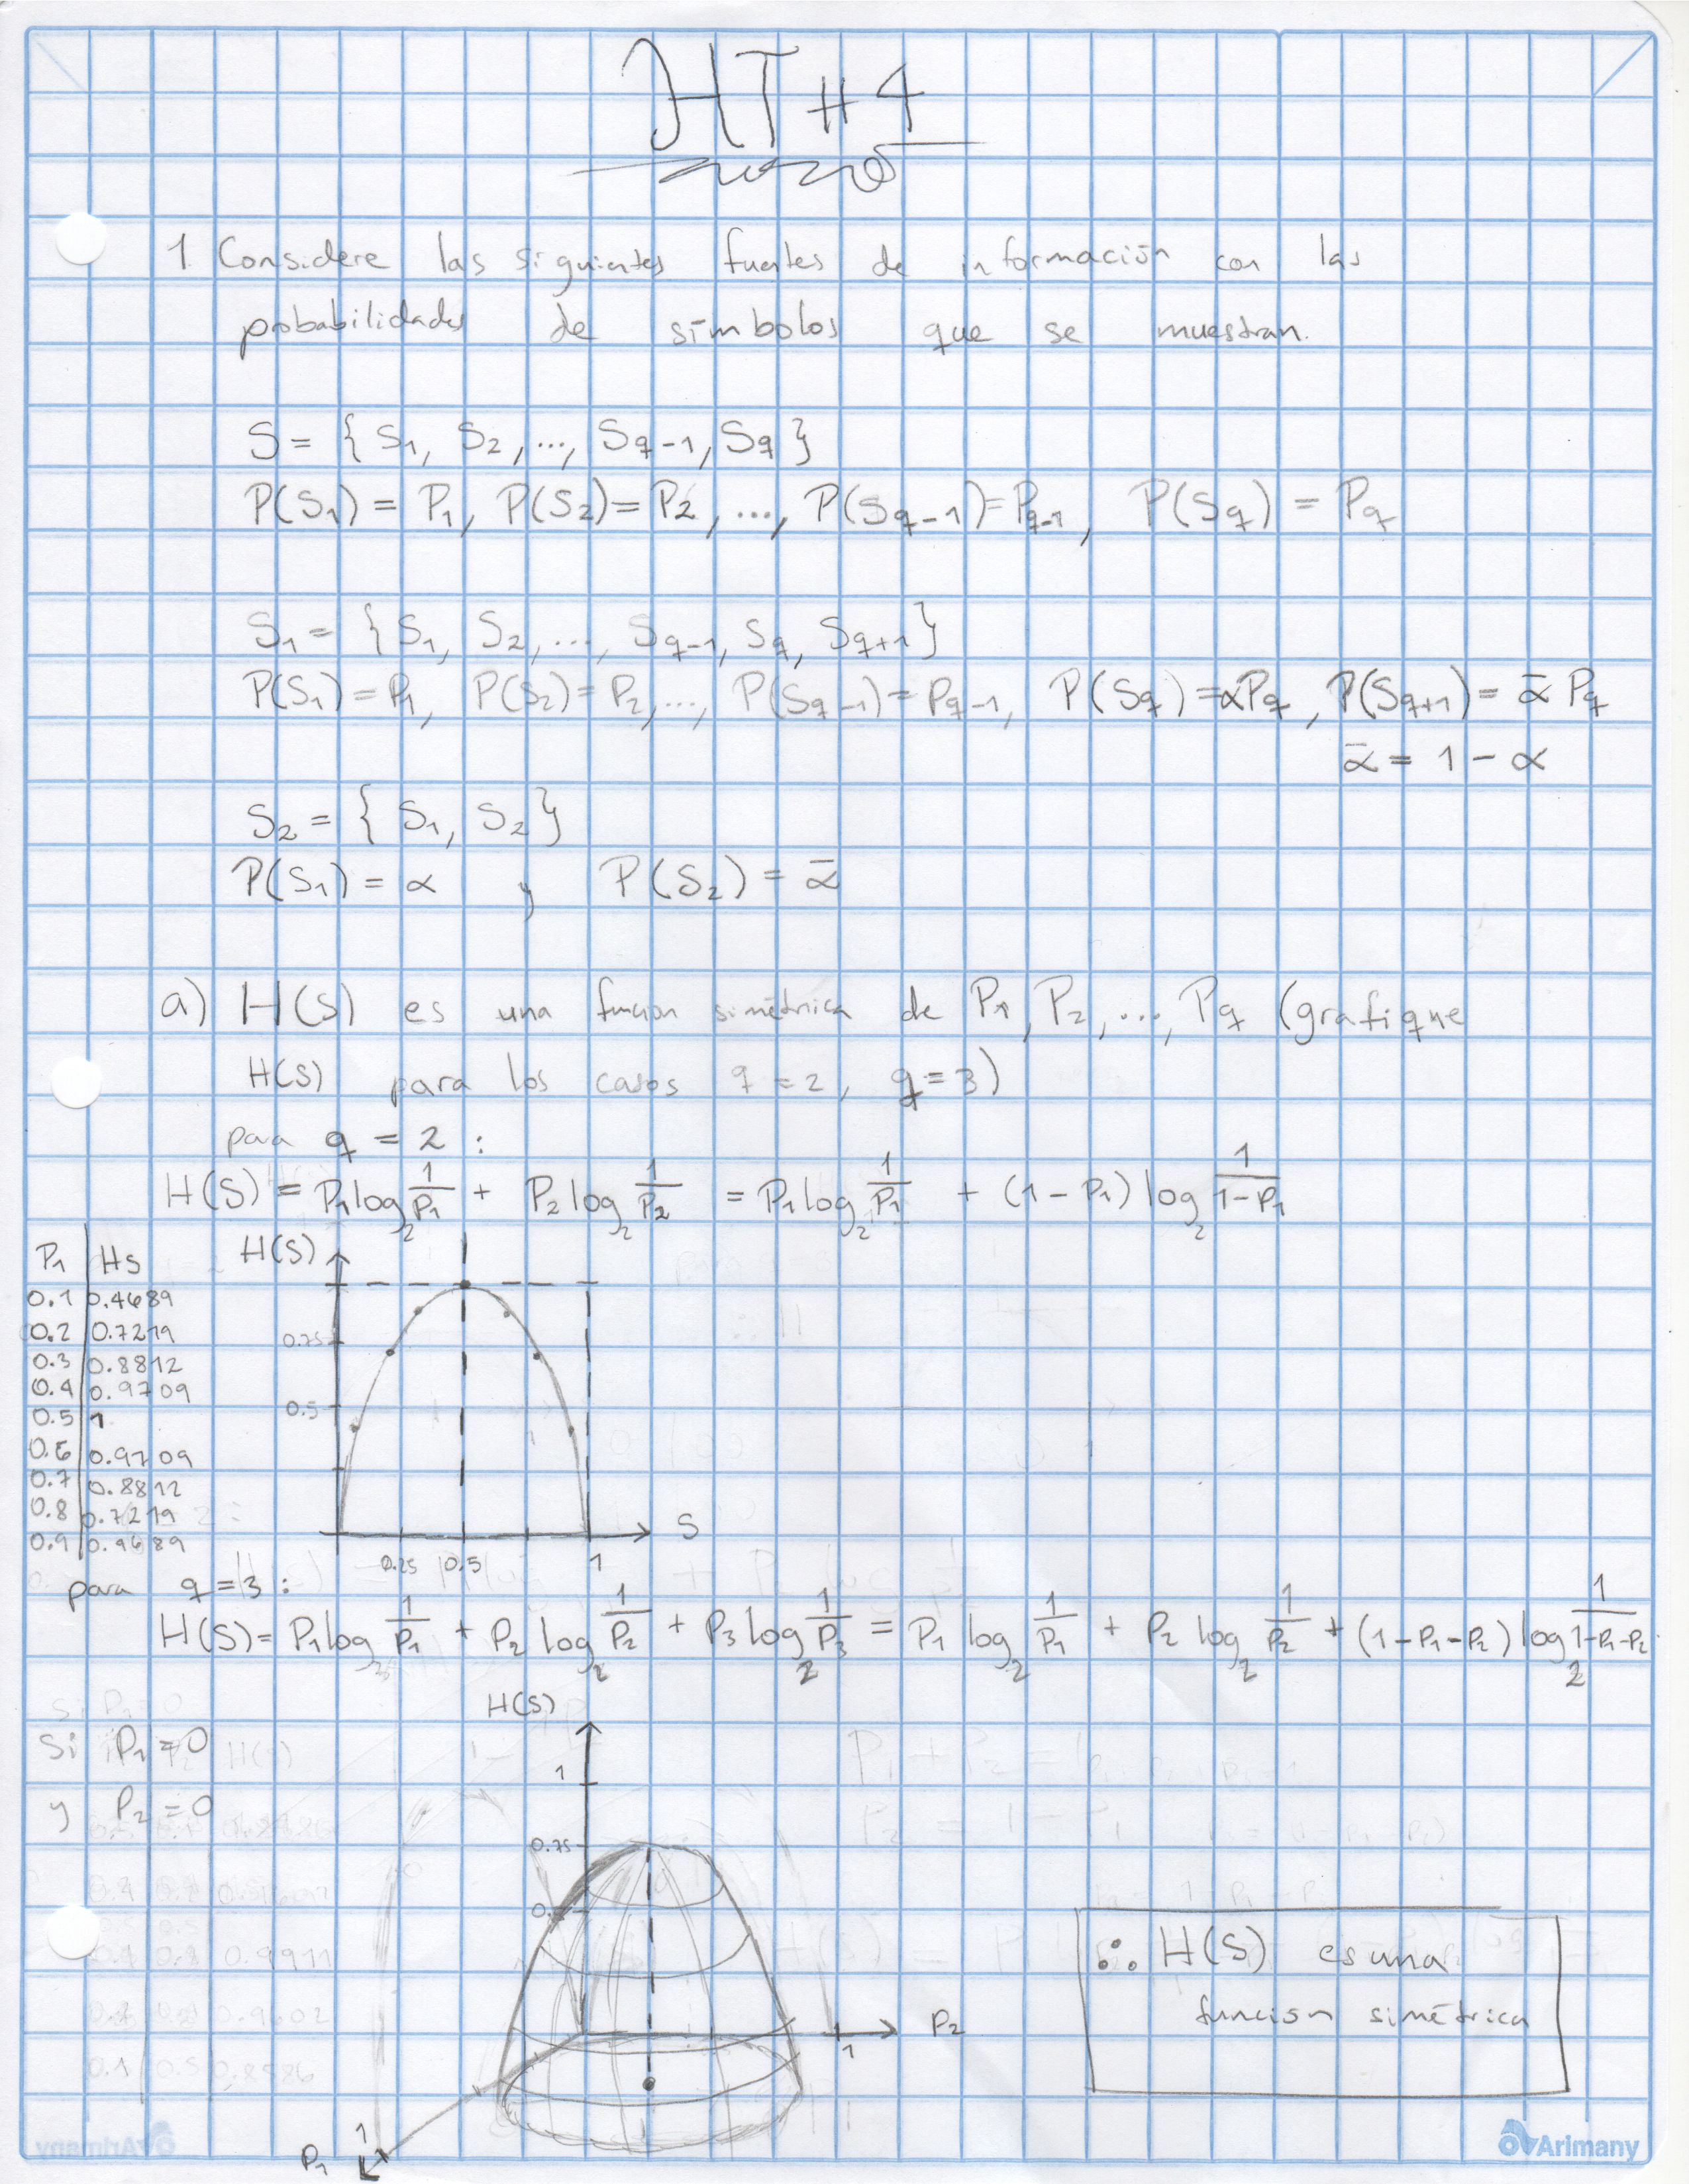 HT #4
1. Considere las siguientes fuentes de información con las
probabilidades de símbolos que se muestran.
S = { S₁, S₂, ..., Sq-1, Sq }
P(S₁) = P₁, P(S₂) = P₂, ..., P(Sq-1) = Pq-1, P(Sq) = Pq
S₁ = { S₁, S₂, ..., Sq-1, Sq, Sq+1 }
P(S₁) = P₁, P(S₂) = P₂, ..., P(Sq-1) = Pq-1, P(Sq) = αPq, P(Sq+1) = ᾱ Pq
ᾱ = 1 - α
S₂ = { S₁, S₂ }
P(S₁) = α y P(S₂) = ᾱ
a) H(S) es una funcion simétrica de P₁, P₂, ..., Pq (grafique
H(S) para los casos q = 2, q = 3)
para q = 2 :
H(S) = P₁ log₂ 1/P₁ + P₂ log₂ 1/P₂ = P₁ log₂ 1/P₁ + (1 - P₁) log₂ 1/(1-P₁)
P₁ | Hs
0.1 | 0.4689
0.2 | 0.7219
0.3 | 0.8812
0.4 | 0.9709
0.5 | 1
0.6 | 0.9709
0.7 | 0.8812
0.8 | 0.7219
0.9 | 0.4689
H(S)
0.75
0.5
0.25 0.5 1
S
para q = 3 :
H(S) = P₁ log₂ 1/P₁ + P₂ log₂ 1/P₂ + P₃ log₂ 1/P₃ = P₁ log₂ 1/P₁ + P₂ log₂ 1/P₂ + (1-P₁-P₂) log₂ 1/(1-P₁-P₂)
Si P₁ = 0
y P₂ = 0
H(S)
1
0.75
P₂
1
P₁
1
∴ H(S) es una
función simétrica
Arimany